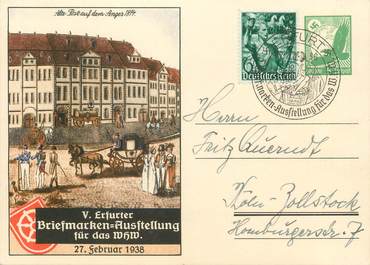 Alte Post auf dem Anger 1874.
V. Erfurter
Briefmarken=Ausstellung
für das WHW.
27. Februar 1938
Deutsches Reich
ERFURT
Briefmarken-Ausstellung für das W
Herrn
Fritz Querndt
Köln-Zollstock
Homburgerstr. 7